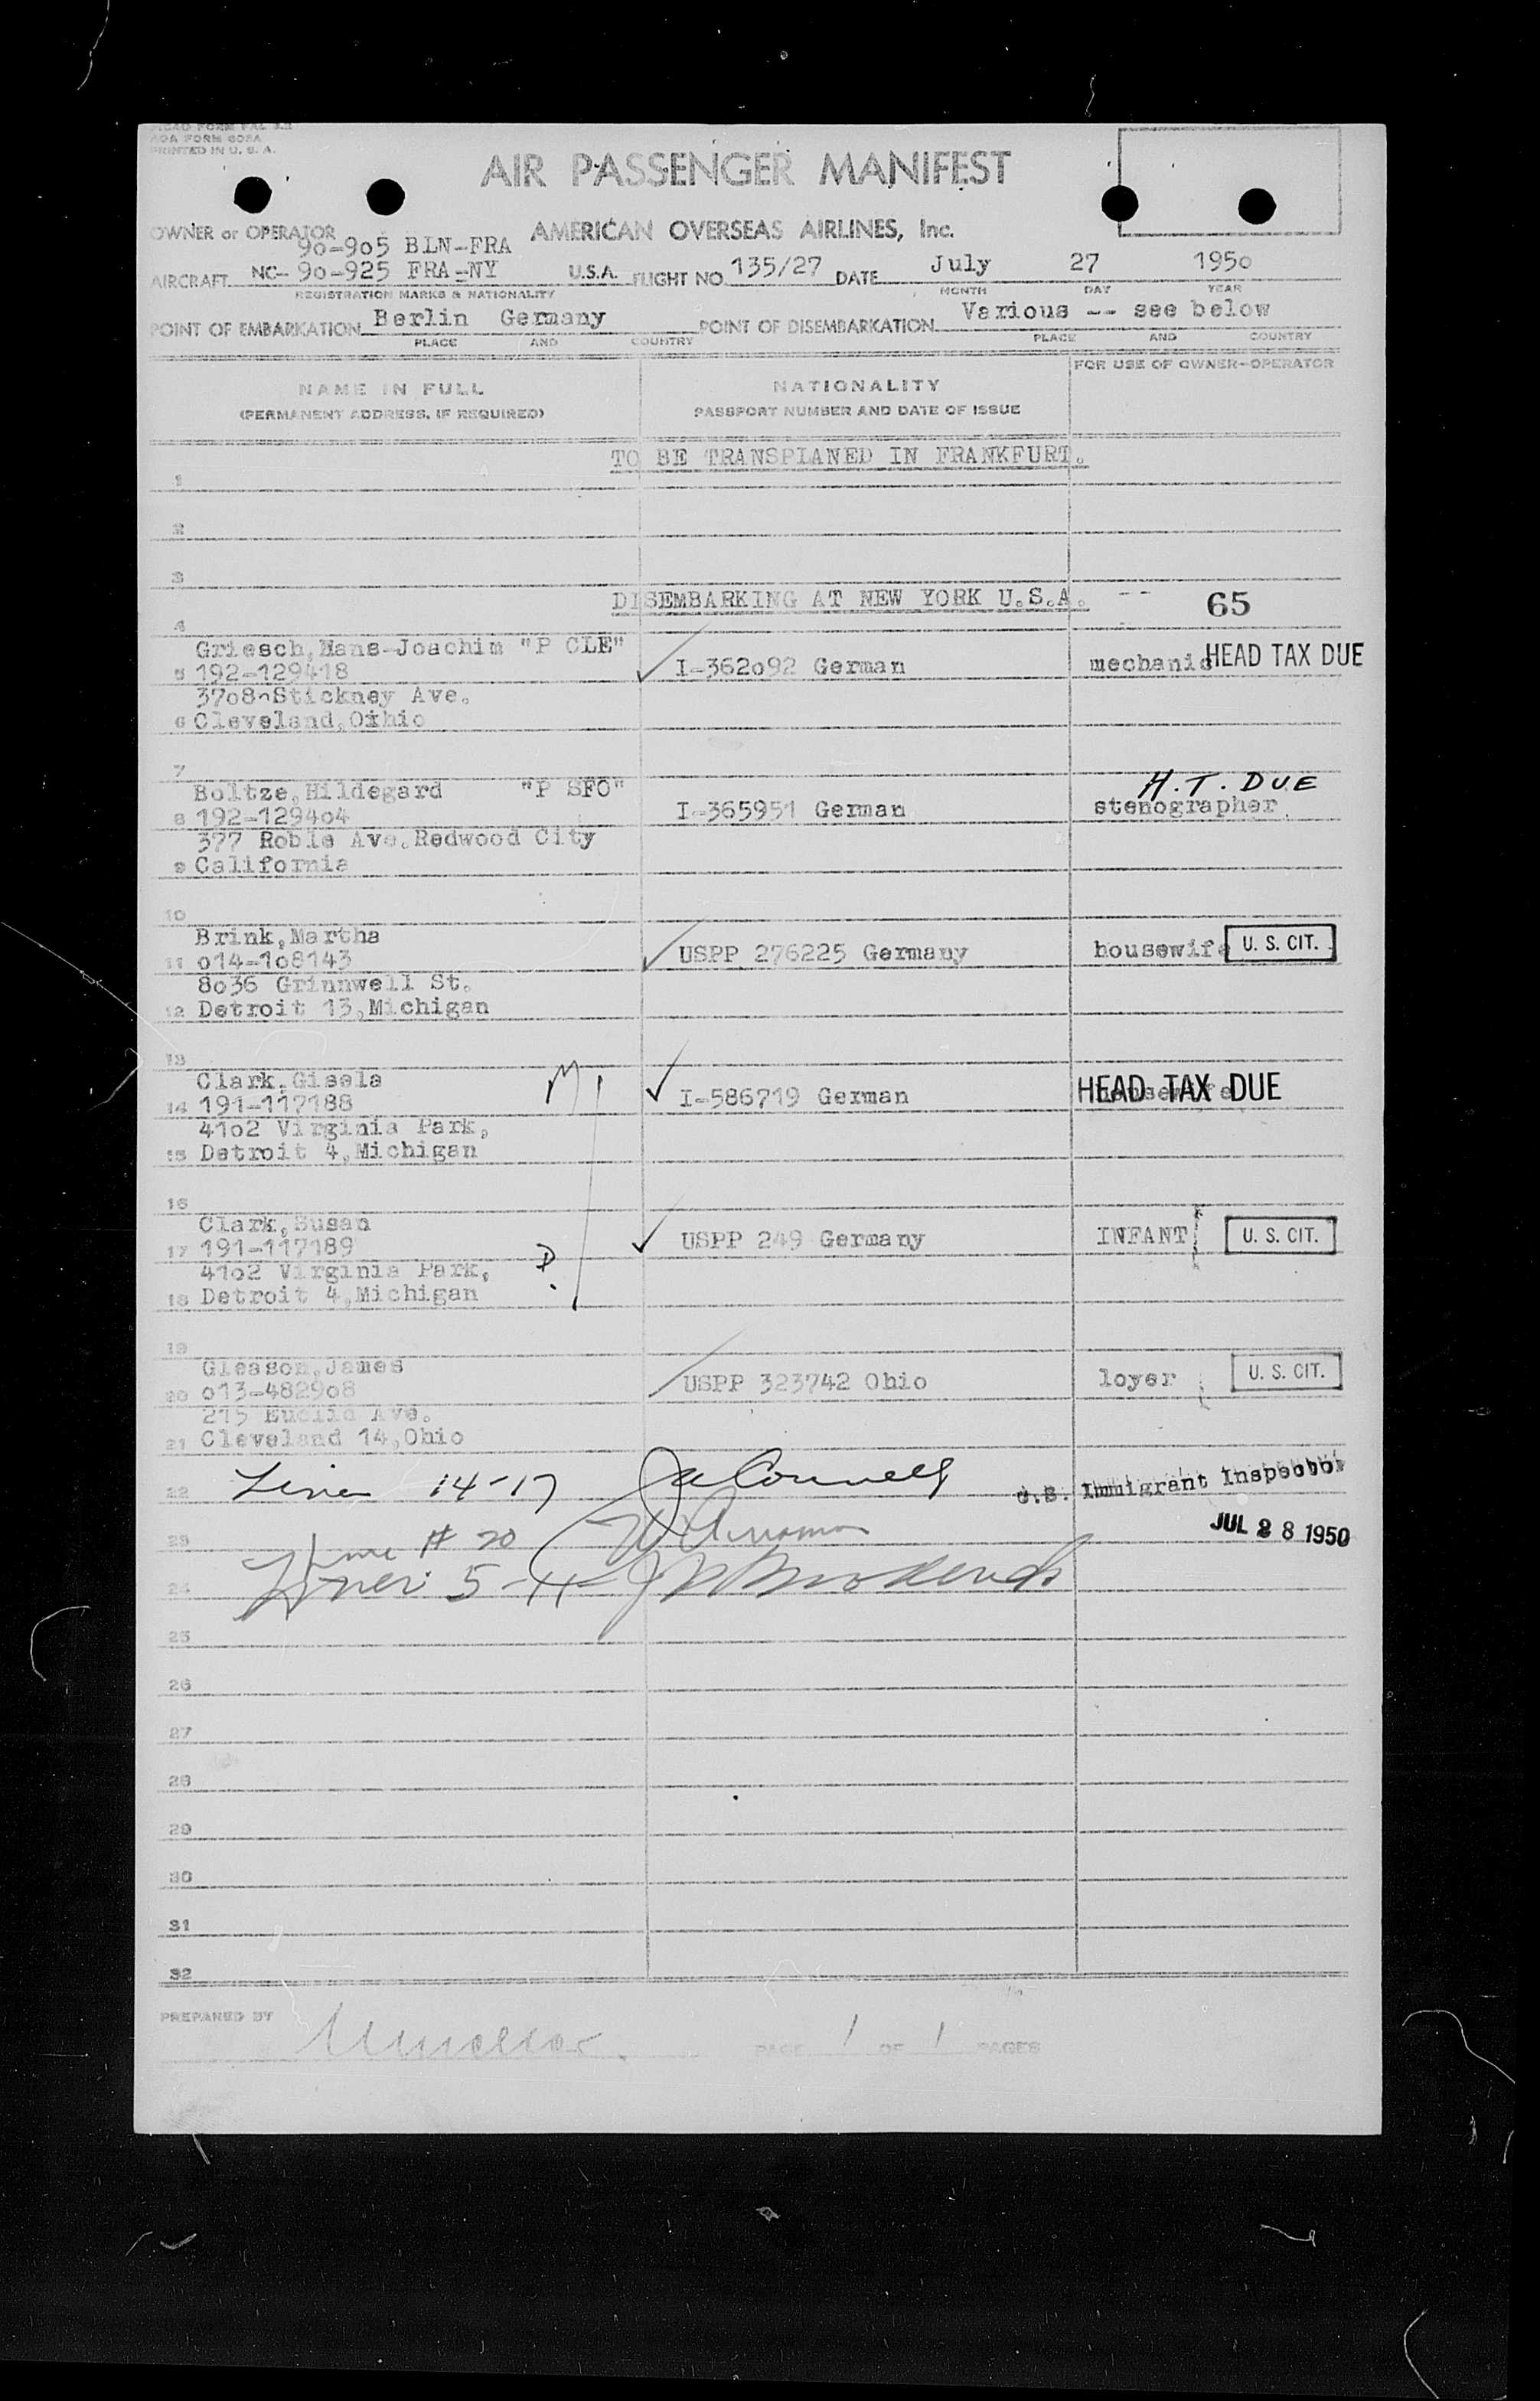 ICAO FORM PAL 3.2
AOA FORM 608A
PRINTED IN U. S. A.
AIR PASSENGER MANIFEST
OWNER or OPERATOR AMERICAN OVERSEAS AIRLINES, Inc.
90-905 BLN-FRA
AIRCRAFT NC- 90-925 FRA-NY U.S.A. FLIGHT NO. 135/27 DATE July 27 1950
REGISTRATION MARKS & NATIONALITY MONTH DAY YEAR
POINT OF EMBARKATION Berlin Germany POINT OF DISEMBARKATION Various -- see below
PLACE AND COUNTRY PLACE AND COUNTRY
FOR USE OF OWNER-OPERATOR
NAME IN FULL NATIONALITY
(PERMANENT ADDRESS, IF REQUIRED) PASSPORT NUMBER AND DATE OF ISSUE
TO BE TRANSPLANED IN FRANKFURT.
1
2
3
DISEMBARKING AT NEW YORK U.S.A. -- 65
4
Griesch,Hans-Joachim "P CLE"
5 192-129418 I-362o92 German mechanic HEAD TAX DUE
37o8 Stickney Ave.
6 Cleveland,Oihio
7
Boltze,Hildegard "P SFO" H.T. DUE
8 192-1294o4 I-365951 German stenographer
377 Roble Ave.Redwood City
9 California
10
Brink,Martha
11 o14-1o8143 USPP 276225 Germany housewife U. S. CIT.
8o36 Grinnwell St.
12 Detroit 13,Michigan
13
Clark,Gisela M
14 191-117188 I-586719 German housewife HEAD TAX DUE
41o2 Virginia Park,
15 Detroit 4,Michigan
16
Clark,Susan
17 191-117189 USPP 249 Germany INFANT U. S. CIT.
41o2 Virginia Park, D
18 Detroit 4,Michigan
19
Gleason,James
20 o13-4829o8 USPP 323742 Ohio loyer U. S. CIT.
215 Euclid Ave.
21 Cleveland 14,Ohio
22 Lines 14-17 U.S. Immigrant Inspector
23 Line # 20 JUL 28 1950
24 Lines 5-11
25
26
27
28
29
30
31
32
PREPARED BY PAGE 1 OF 1 PAGES